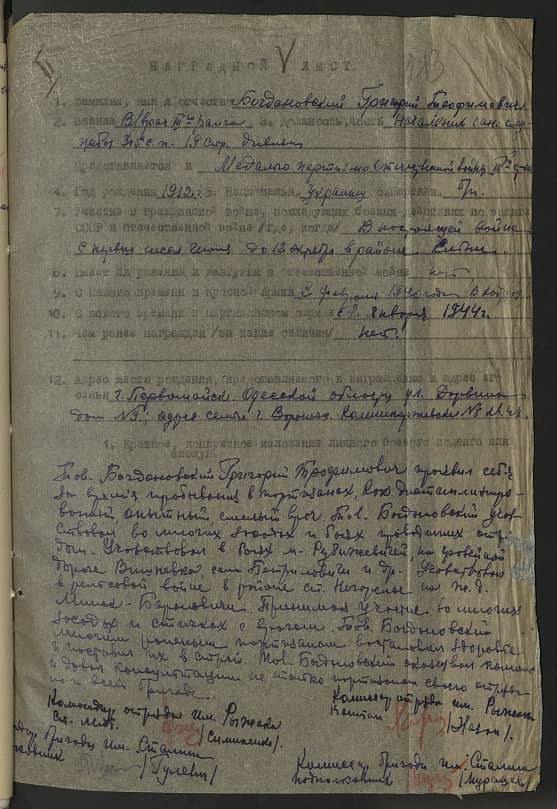 НАГРАДНОЙ ЛИСТ.
1. Фамилия, имя и отчество Богдановский Григорий Трофимович
2. Звание В/врач III-го ранга 3. Должность, часть Начальник сан. слу-
жбы с.п. дивизии
Представляется к Медалью партизана Отечественной войны
4. Год рождения 1912 г. 5. Национальн. Украинец б/п.
7. Участие в гражданской войне, последующих боевых действиях по защите
СССР и отечественной войне /где, когда/ В настоящей войне
с первых чисел июня до 13 октября в районе
8. Имеет ли ранения и контузии в отечественной войне нет
9. С какого времени в Красной Армии с февраля 1940 года
10. С какого времени в партизанском отряде с 2 января 1944 г.
11. Чем ранее награжден /за какие отличия/ Нет.
12. Адрес места рождения, представляемого к награждению и адрес его
семьи г. Первомайск Одесской области ул. Дарвина
дом №1; адрес семьи г.
1. Краткое, конкретное изложение личного боевого подвига или
заслуг.
Тов. Богдановский Григорий Трофимович проявил себя
за время пребывания в партизанах, как дисциплиниро-
ванный, опытный, смелый врач. Тов. Богдановский учав-
ствовал во многих засадах и боях проводимых отря-
дом. Учавствовал в боях м. Рубежевичи на
дороге Вишневка село и др. Учавствовал
в рельсовой войне в районе ст. Негорелое на ж.д.
Минск - Барановичи. Принимал участие во многих
засадах и стычках с врагом. Тов. Богдановский
многим раненым партизанам восстановил здоровье
и поставил их в строй. Тов. Богдановский оказывал помощь
и давал консультации не только партизанам своего отряда
но и всей бригаде.
Командир отряда им. Рыжака
Ст. лейт. /Симоненко/
Комиссар отряда им. Рыжака
Капитан /Казак/.
бригады им. Сталина
/Гулевич/
Комиссар бригады им. Сталина
подполковник /Мурашов/